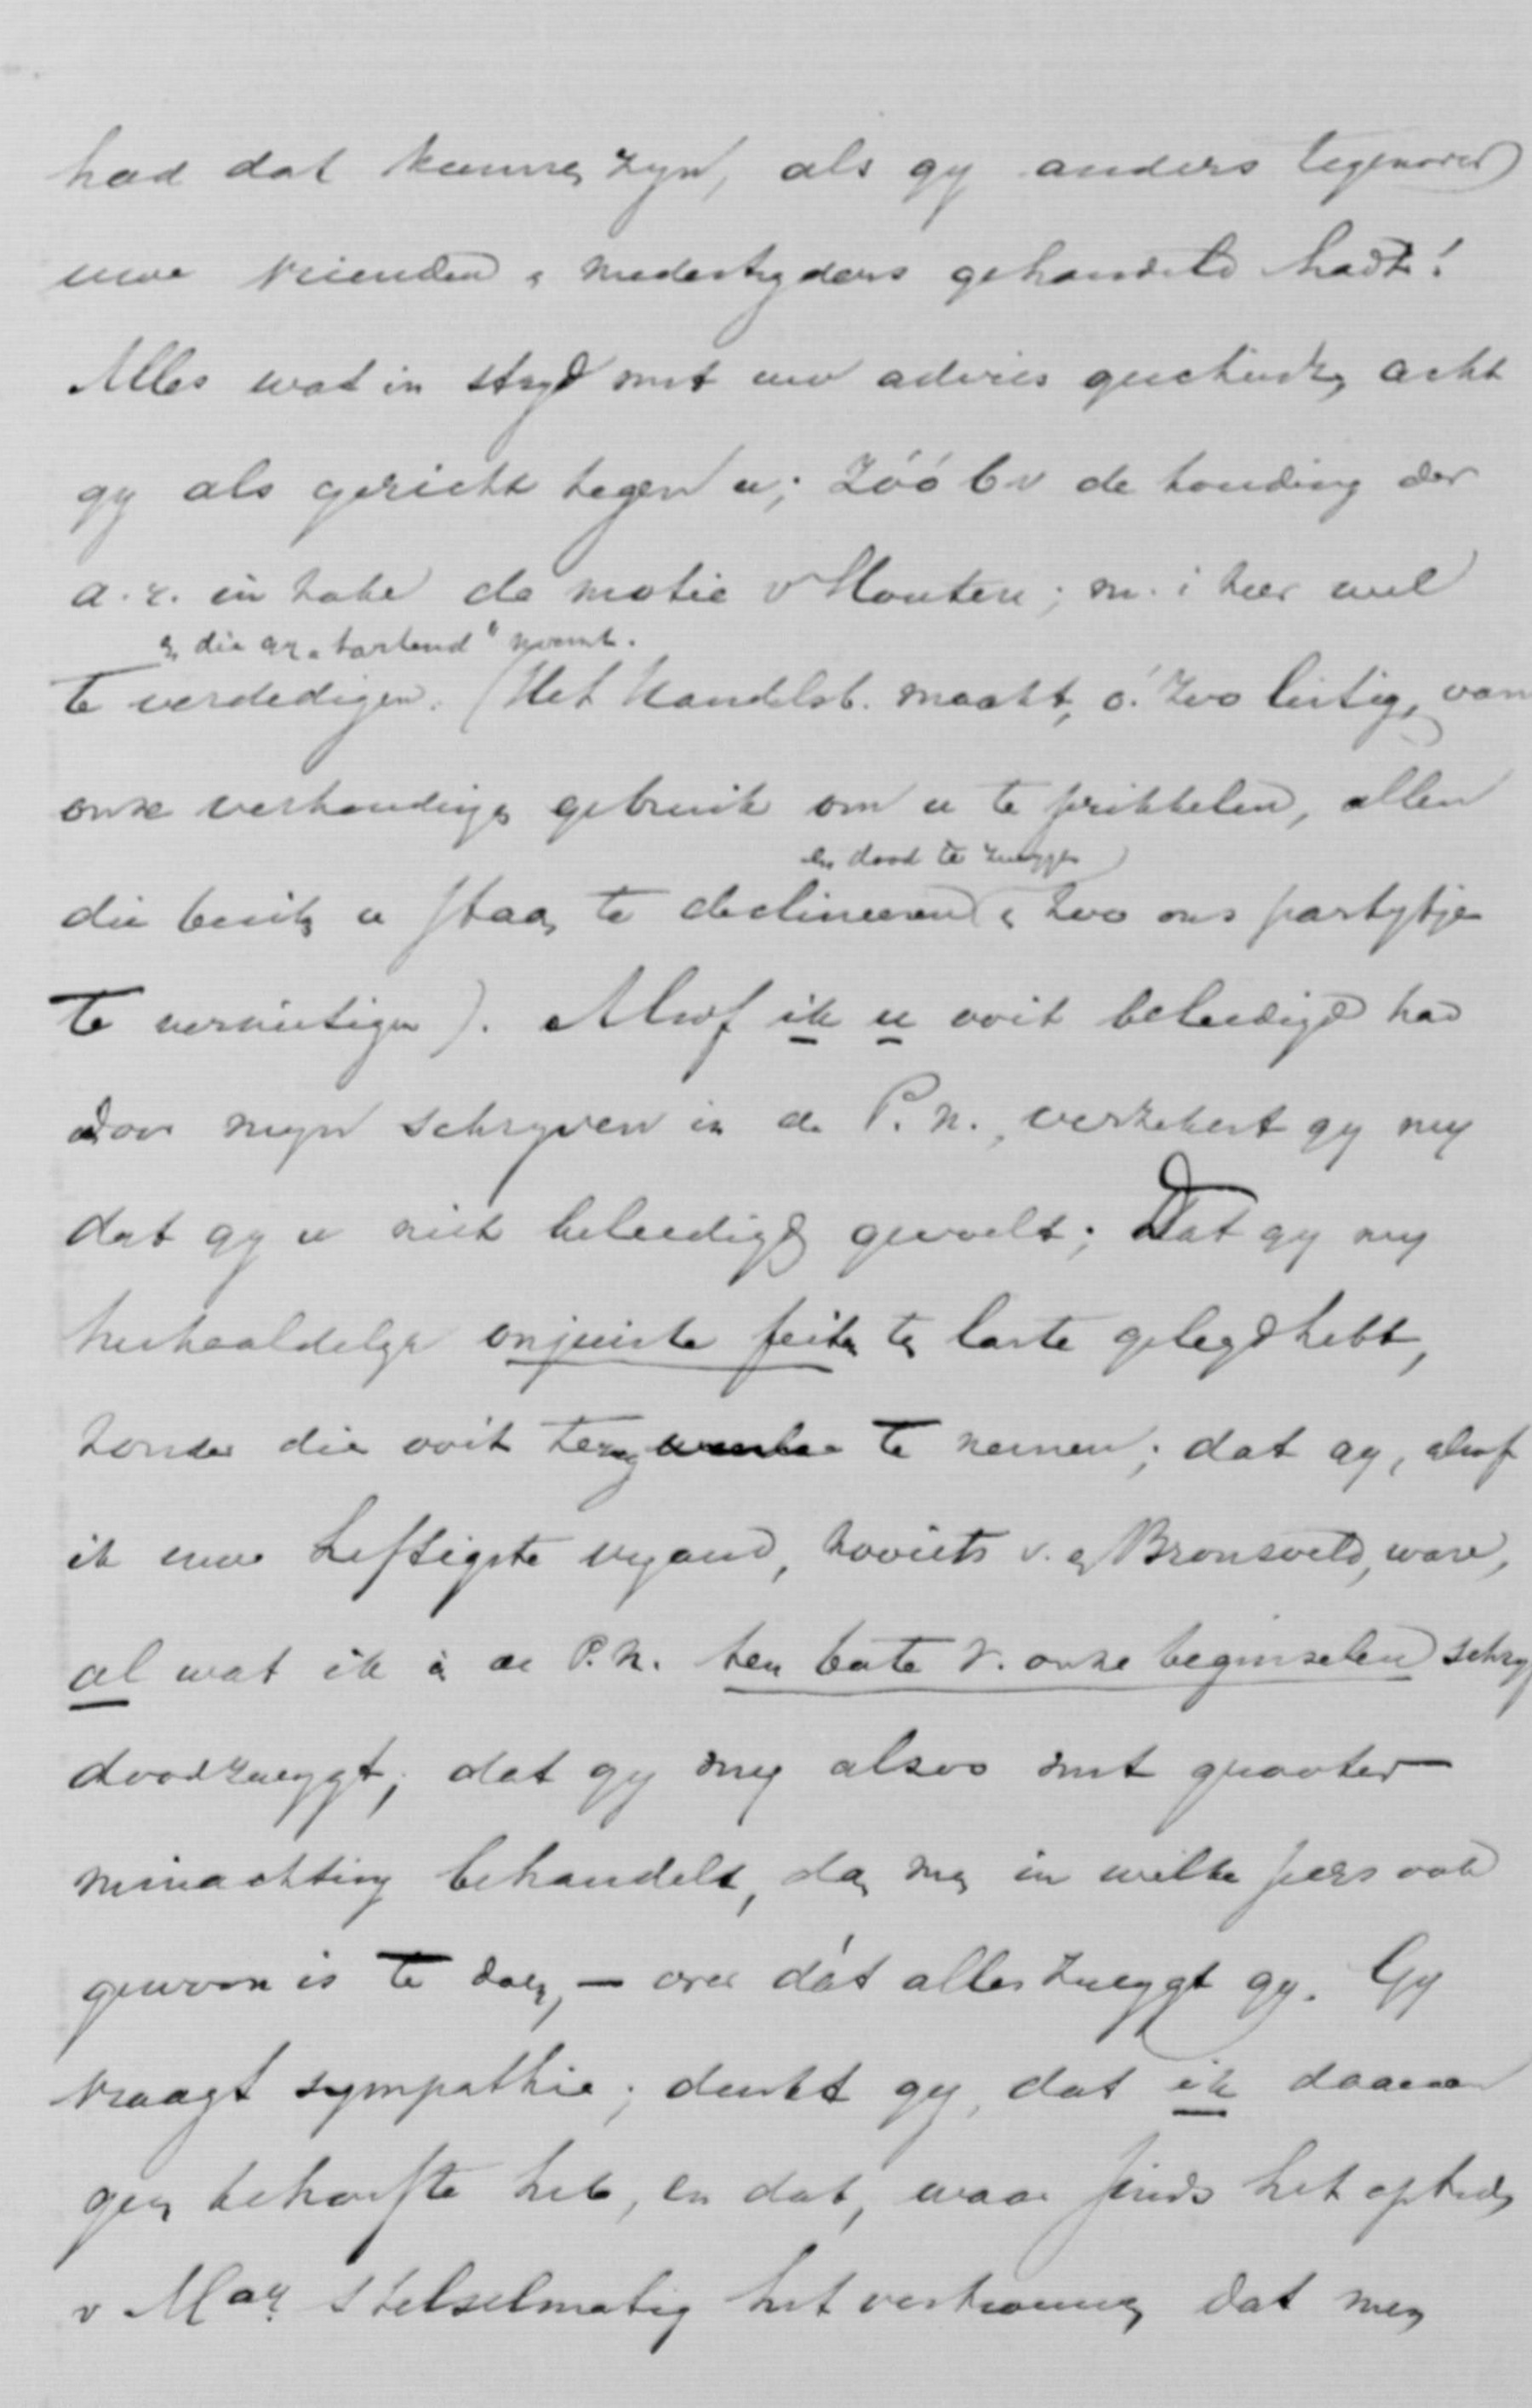 had dat kunnen zyn, als gy anders tegenover
uwe vrienden & medestryders gehandeld hadt!
Alles wat in stryd met uw advies geschiedt, acht
gy als gericht tegen u; zóó bv de houding der
a.r. in zake de motie v Houten; m.i. zeer wel
& die gy "tartend" noemt.
te verdedigen. (Het Handelsb. maakt, o! zoo listig, van
onze verhoudingen gebruik om u te prikkelen, allen
en dood te zwygen
die bezits u staan te declineeren & zoo ons partytje
te vernietigen). Alsof ik u ooit beleedigd had
door myn schryven in de P.N., verzekert gy my
dat gy u niet beleedigd gevoelt; Dat gy my
herhaaldelyk onjuiste feiten te laste gelegd hebt,
zonder die ooit terug te nemen; dat gy, alsof
ik uwe heftigste vyand, zooiets v. een Bronsveld, ware,
al wat ik in de P.N. ten bate v. onze beginselen schryf
doodzwygt; dat gy my alzoo met grooter
minachting behandelt, dan men in welke pers ook
gewoon is te doen, – over dát alles zwygt gy. Gy
vraagt sympathie; denkt gy, dat ik daaraan
geen behoefte heb, en dat, waar sinds het optreden
v Mac. stelselmatig het vertrouwen dat men